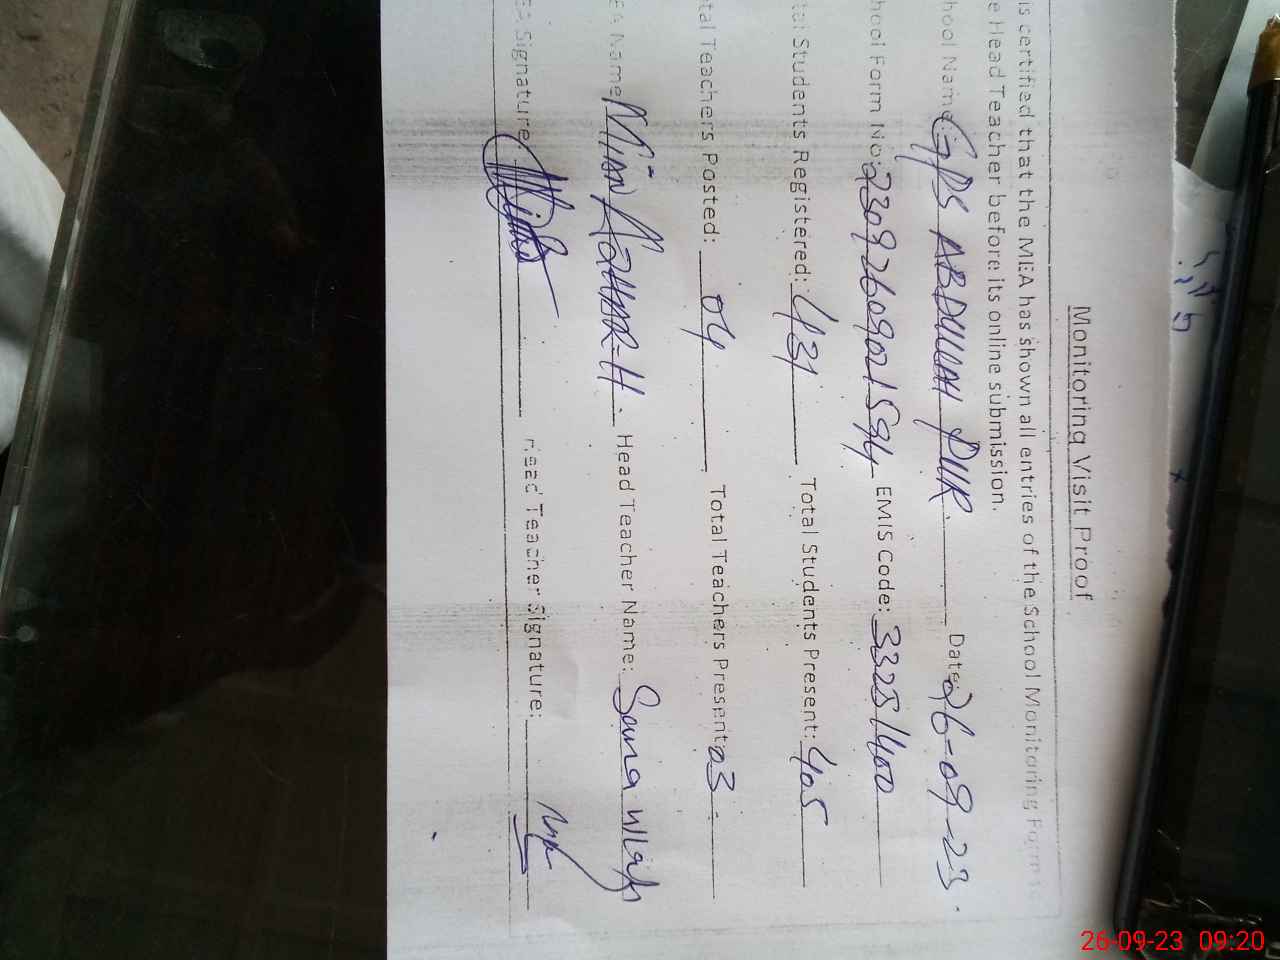 Monitoring Visit Proof
is certified that the MEA has shown all entries of the School Monitoring Form to
e Head Teacher before its online submission.
hool Name: GPS ABDULLAH PUR. Date: 26-09-23.
hool Form No: 23092609021594 EMIS Code: 33251400
tal Students Registered: 431 Total Students Present: 405
tal Teachers Posted: 04 Total Teachers Present: 03
EA Name Mian Head Teacher Name: Sana
EA Signature Head Teacher Signature:
26-09-23 09:20